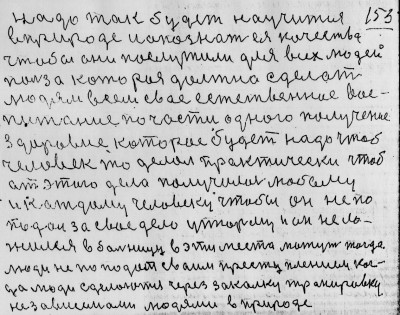 надо так будет научится 153
в природе и опознат ея качества
чтобы они послужили для всех людей
полза которая должна сделат
людям всем свое естественное вос-
питание по части одного получение
здоровие которое будет надо чтоб
человек то делал практически чтоб
от этого дела получилос любому
и каждому человеку чтобы он не по
подал за свое дело у тюрму и он не ло-
жился в болницу в эти места могут тогда
люди не поподат своим преступлением ког-
да люди сделаются через закалку тренировку
независимами людями в природе